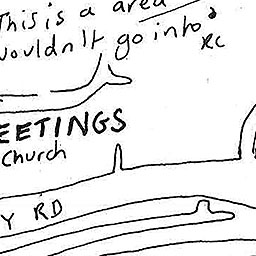 This is a area
wouldn't go into
RC
EETINGS
Church
Y RD